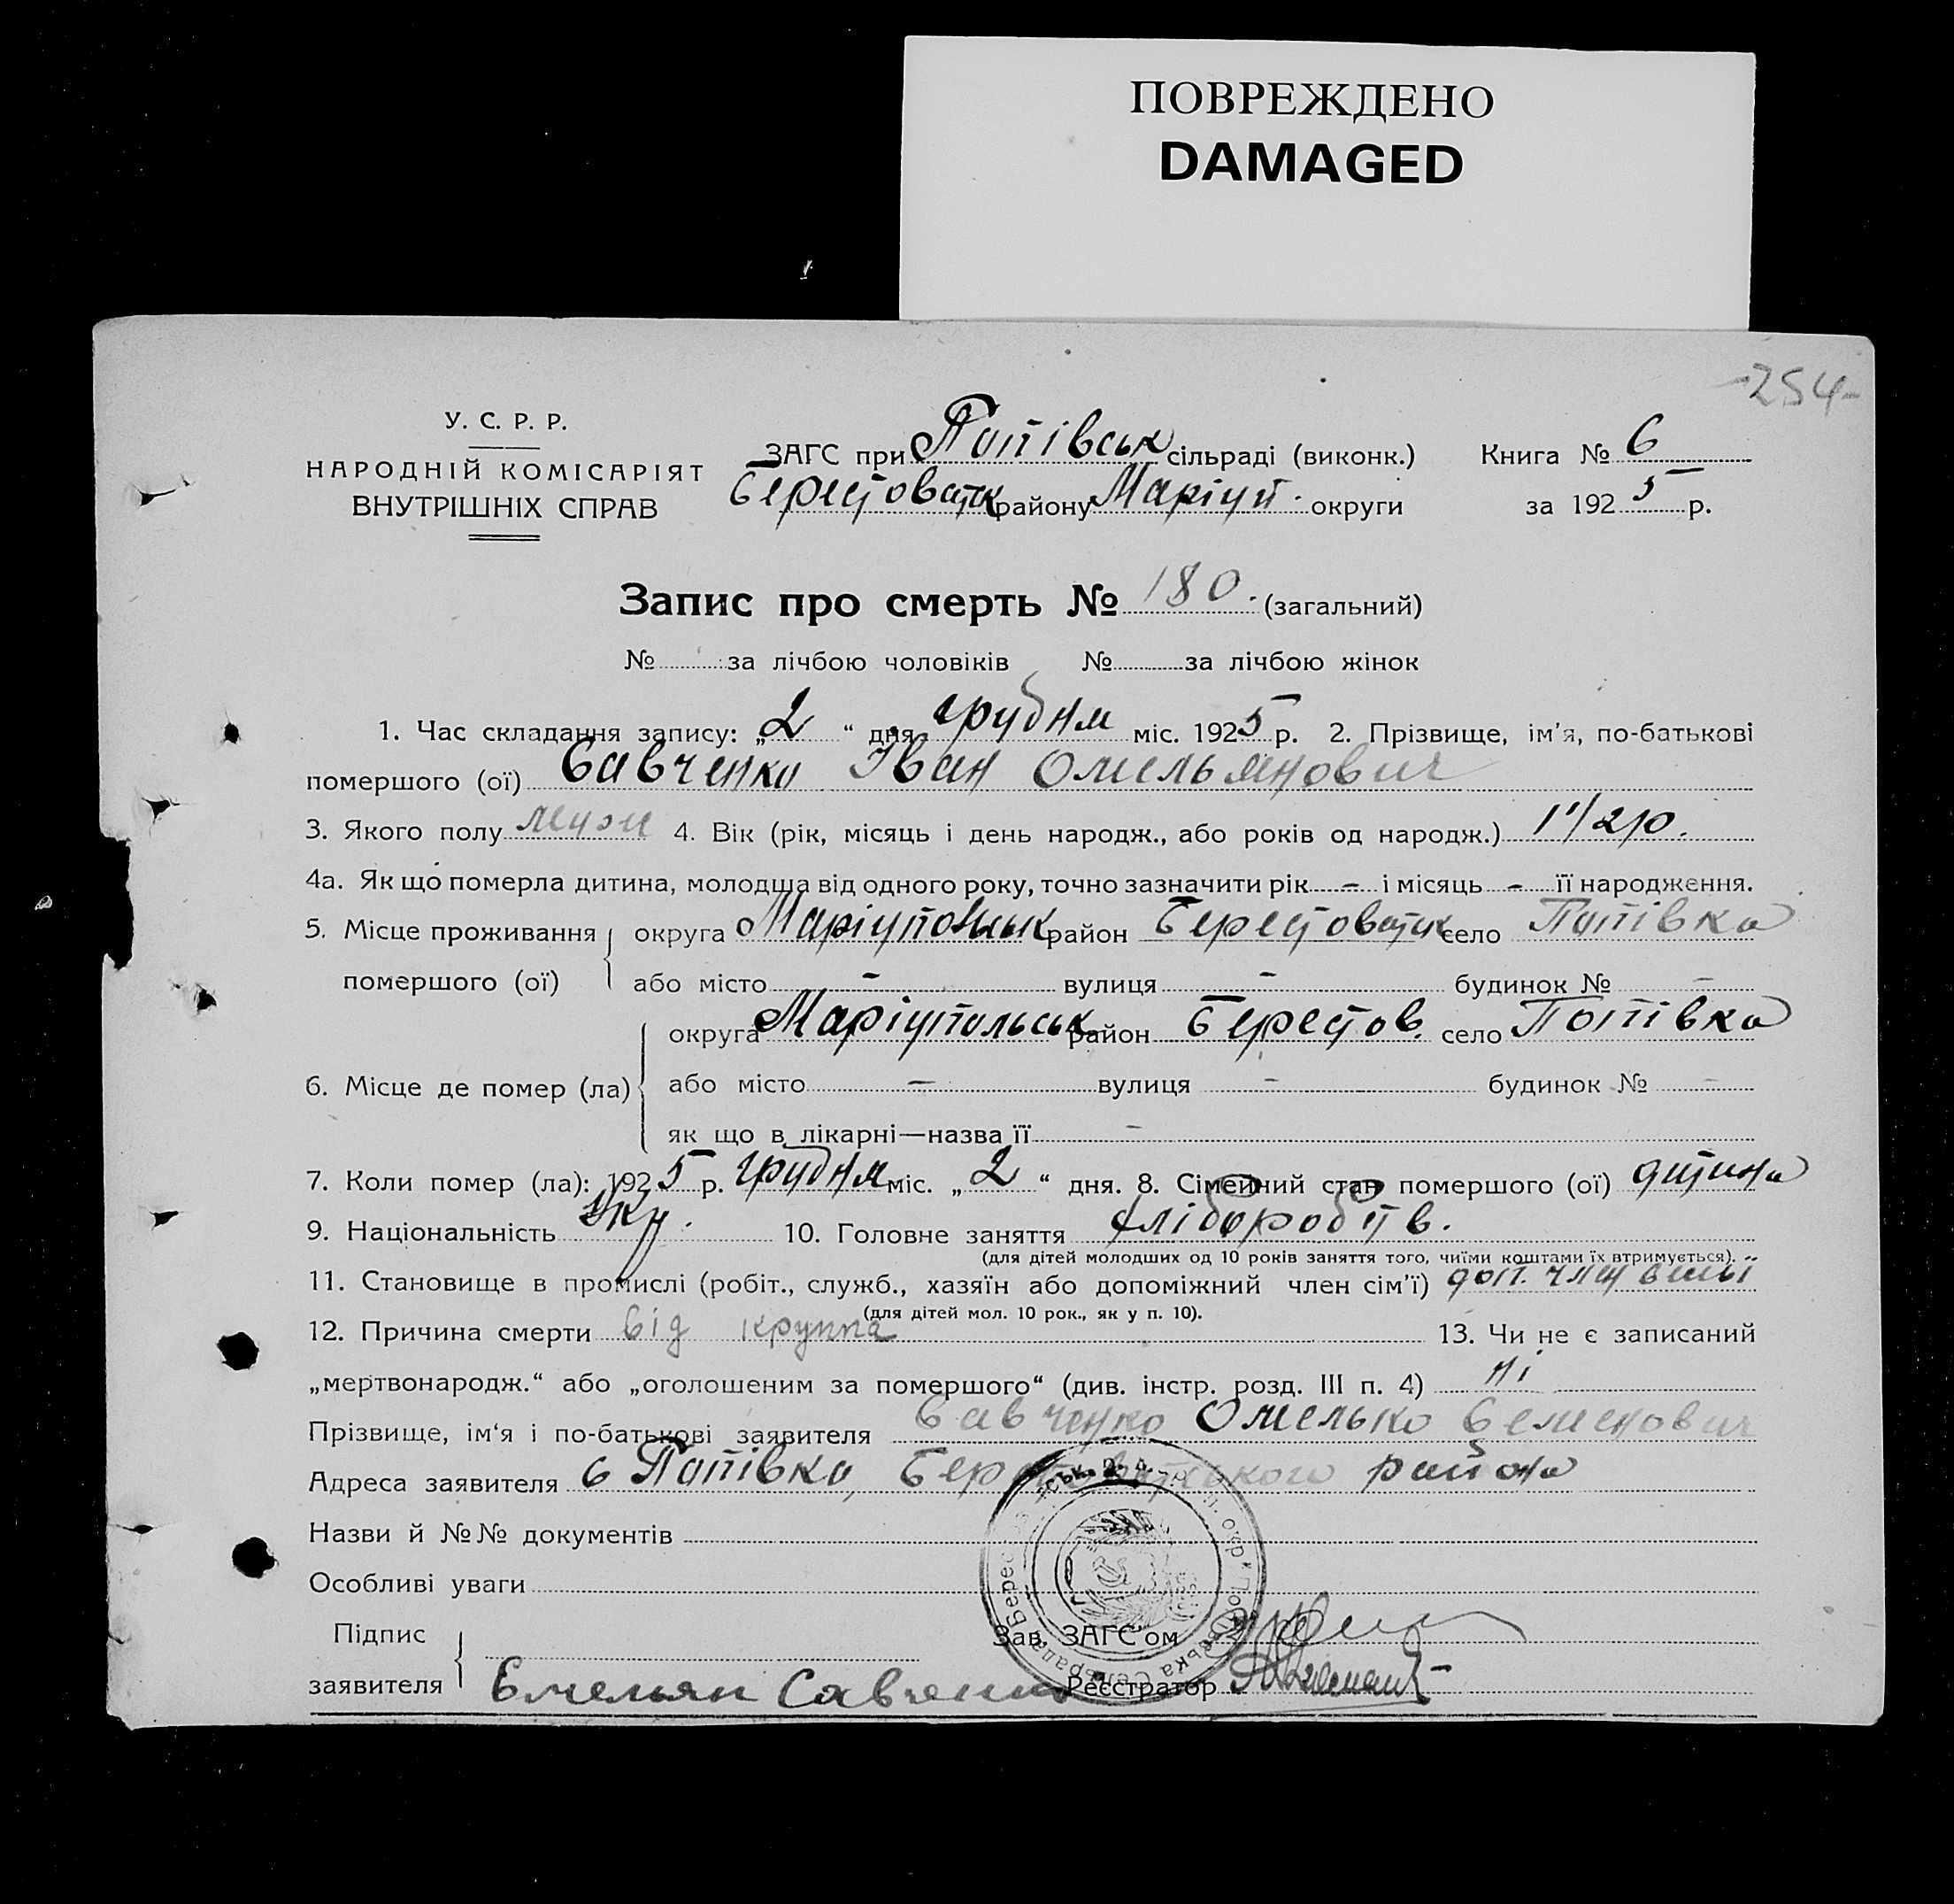 ПОВРЕЖДЕНО
DAMAGED
-254-
У. С. Р. Р.
НАРОДНІЙ КОМІСАРІЯТ
ВНУТРІШНІХ СПРАВ
ЗАГС при Попівськ сільраді (виконк.)
Берестоватськ району Маріуп. округи
Книга № 6
за 1925 р.
Запис про смерть № 180. (загальний)
№ за лічбою чоловіків № за лічбою жінок
1. Час складання запису: „2“ дня грудня міс. 1925 р. 2. Прізвище, ім’я, по-батькові
помершого (ої) Савченко Іван Омельянович
3. Якого полу 4. Вік (рік, місяць і день народж., або років од народж.) 1 1/2 р.
4а. Як що померла дитина, молодша від одного року, точно зазначити рік - і місяць - її народження.
5. Місце проживання округа Маріупольськ район село Попівка
помершого (ої) або місто - вулиця - будинок № -
округа Маріупольськ район Берестов. село Попівка
6. Місце де помер (ла) або місто - вулиця - будинок № -
як що в лікарні—назва її -
7. Коли помер (ла): 1925 р. грудня міс. „2“ дня. 8. Сімейний стан помершого (ої) дитина
9. Національність Укр. 10. Головне заняття хліборобств.
(для дітей молодших од 10 років заняття того, чиїми коштами їх втримується).
11. Становище в промислі (робіт., служб., хазяїн або допоміжний член сім’ї) доп. член сімьї
(для дітей мол. 10 рок., як у п. 10).
12. Причина смерти від круппа 13. Чи не є записаний
„мертвонародж.“ або „оголошеним за помершого“ (див. інстр. розд. III п. 4) ні
Прізвище, ім‘я і по-батькові заявителя Савченко Омелько Семенович
Адреса заявителя с Попівка, Берестоватського района
Назви й №№ документів
Особливі уваги
Підпис
заявителя Емельян Савченко
Зав. ЗАГС‘ом
Реєстратор